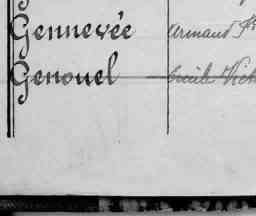 Gennevée Armand
Genouel Cécile